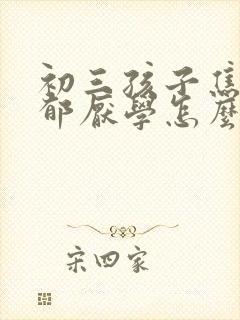 初三孩子焦
郁厭學怎麼
宋四家